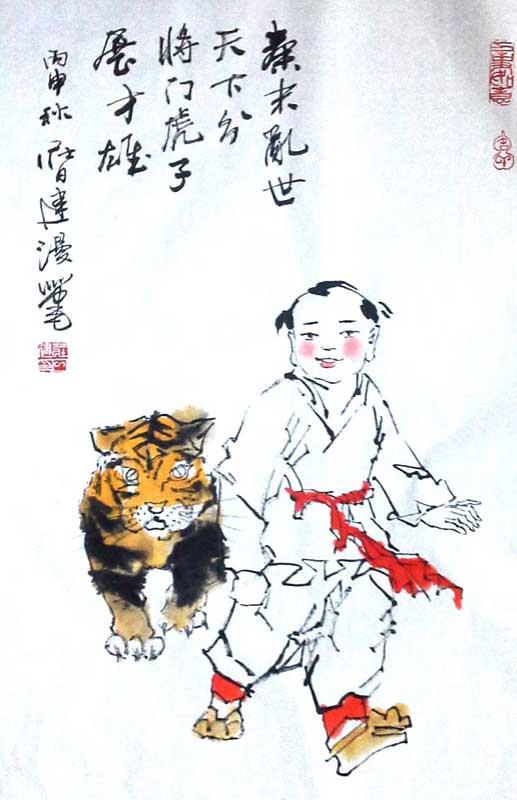 秦末亂世
天下分
將门虎子
展才雄
丙申秋 建漫筆
万事如意